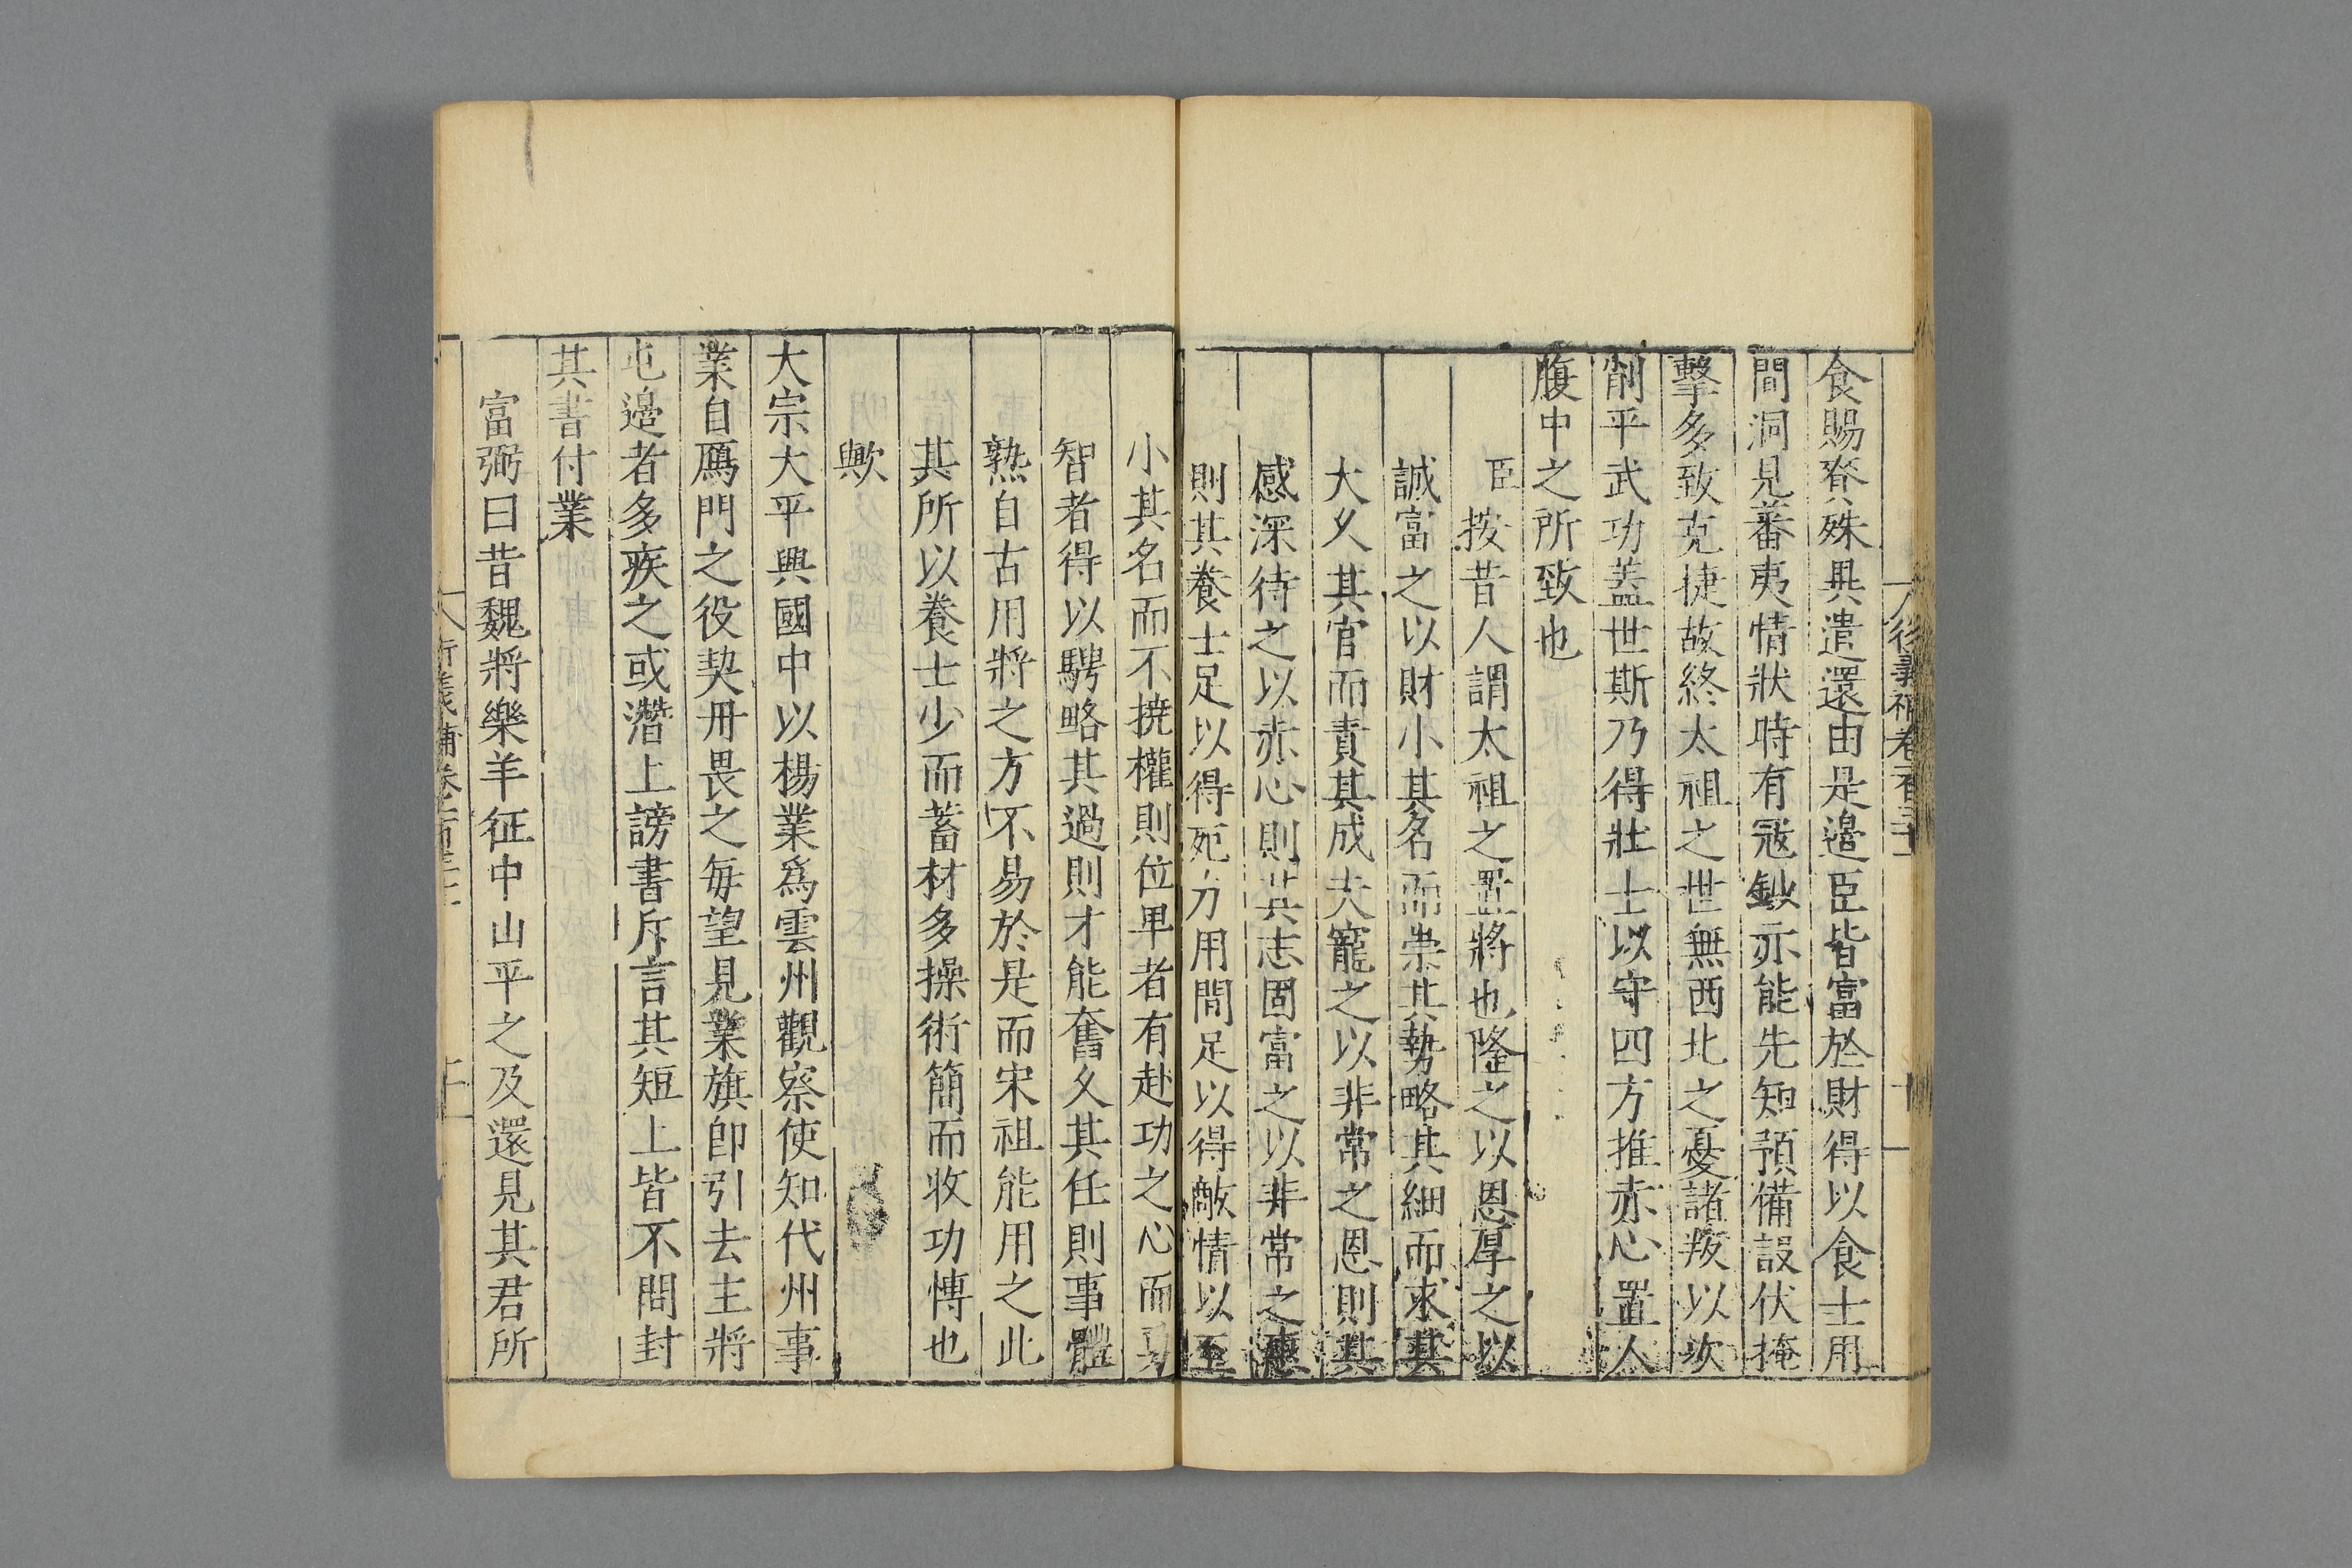 食賜齊殊異遣還由是邉臣皆富於財得以食士用
間洞見蕃夷情狀時有寇鈔亦能先知預備設伏掩
擊多致克捷故終太祖之世無西北之憂諸叛以次
削平武功蓋世斯乃得壯士以守四方推赤心置人
腹中之所致也
臣按昔人謂太祖之置將也隆之以恩厚之以
誠富之以財小其名而崇其勢略其細而求其
大久其官而責其成夫寵之以非常之恩則其
感深待之以赤心則其志固富之以非常之
則其養士足以得死力用間足以得敵情以至
小其名而不撓權則位卑者有赴功之心而
智者得以騁略其過則才能奮久其任則事體
熟自古用將之方不易於是而宋祖能用之此
其所以養士少而蓄材多操術簡而收功慱也
歟
大宗大平興國中以楊業爲雲州觀察使知代州事
業自鴈門之役契丹畏之每望見業旗即引去主將
屯邉者多疾之或潛上謗書斥言其短上皆不問封
其書付業
富弼曰昔魏將樂羊征中山平之及還見其君所